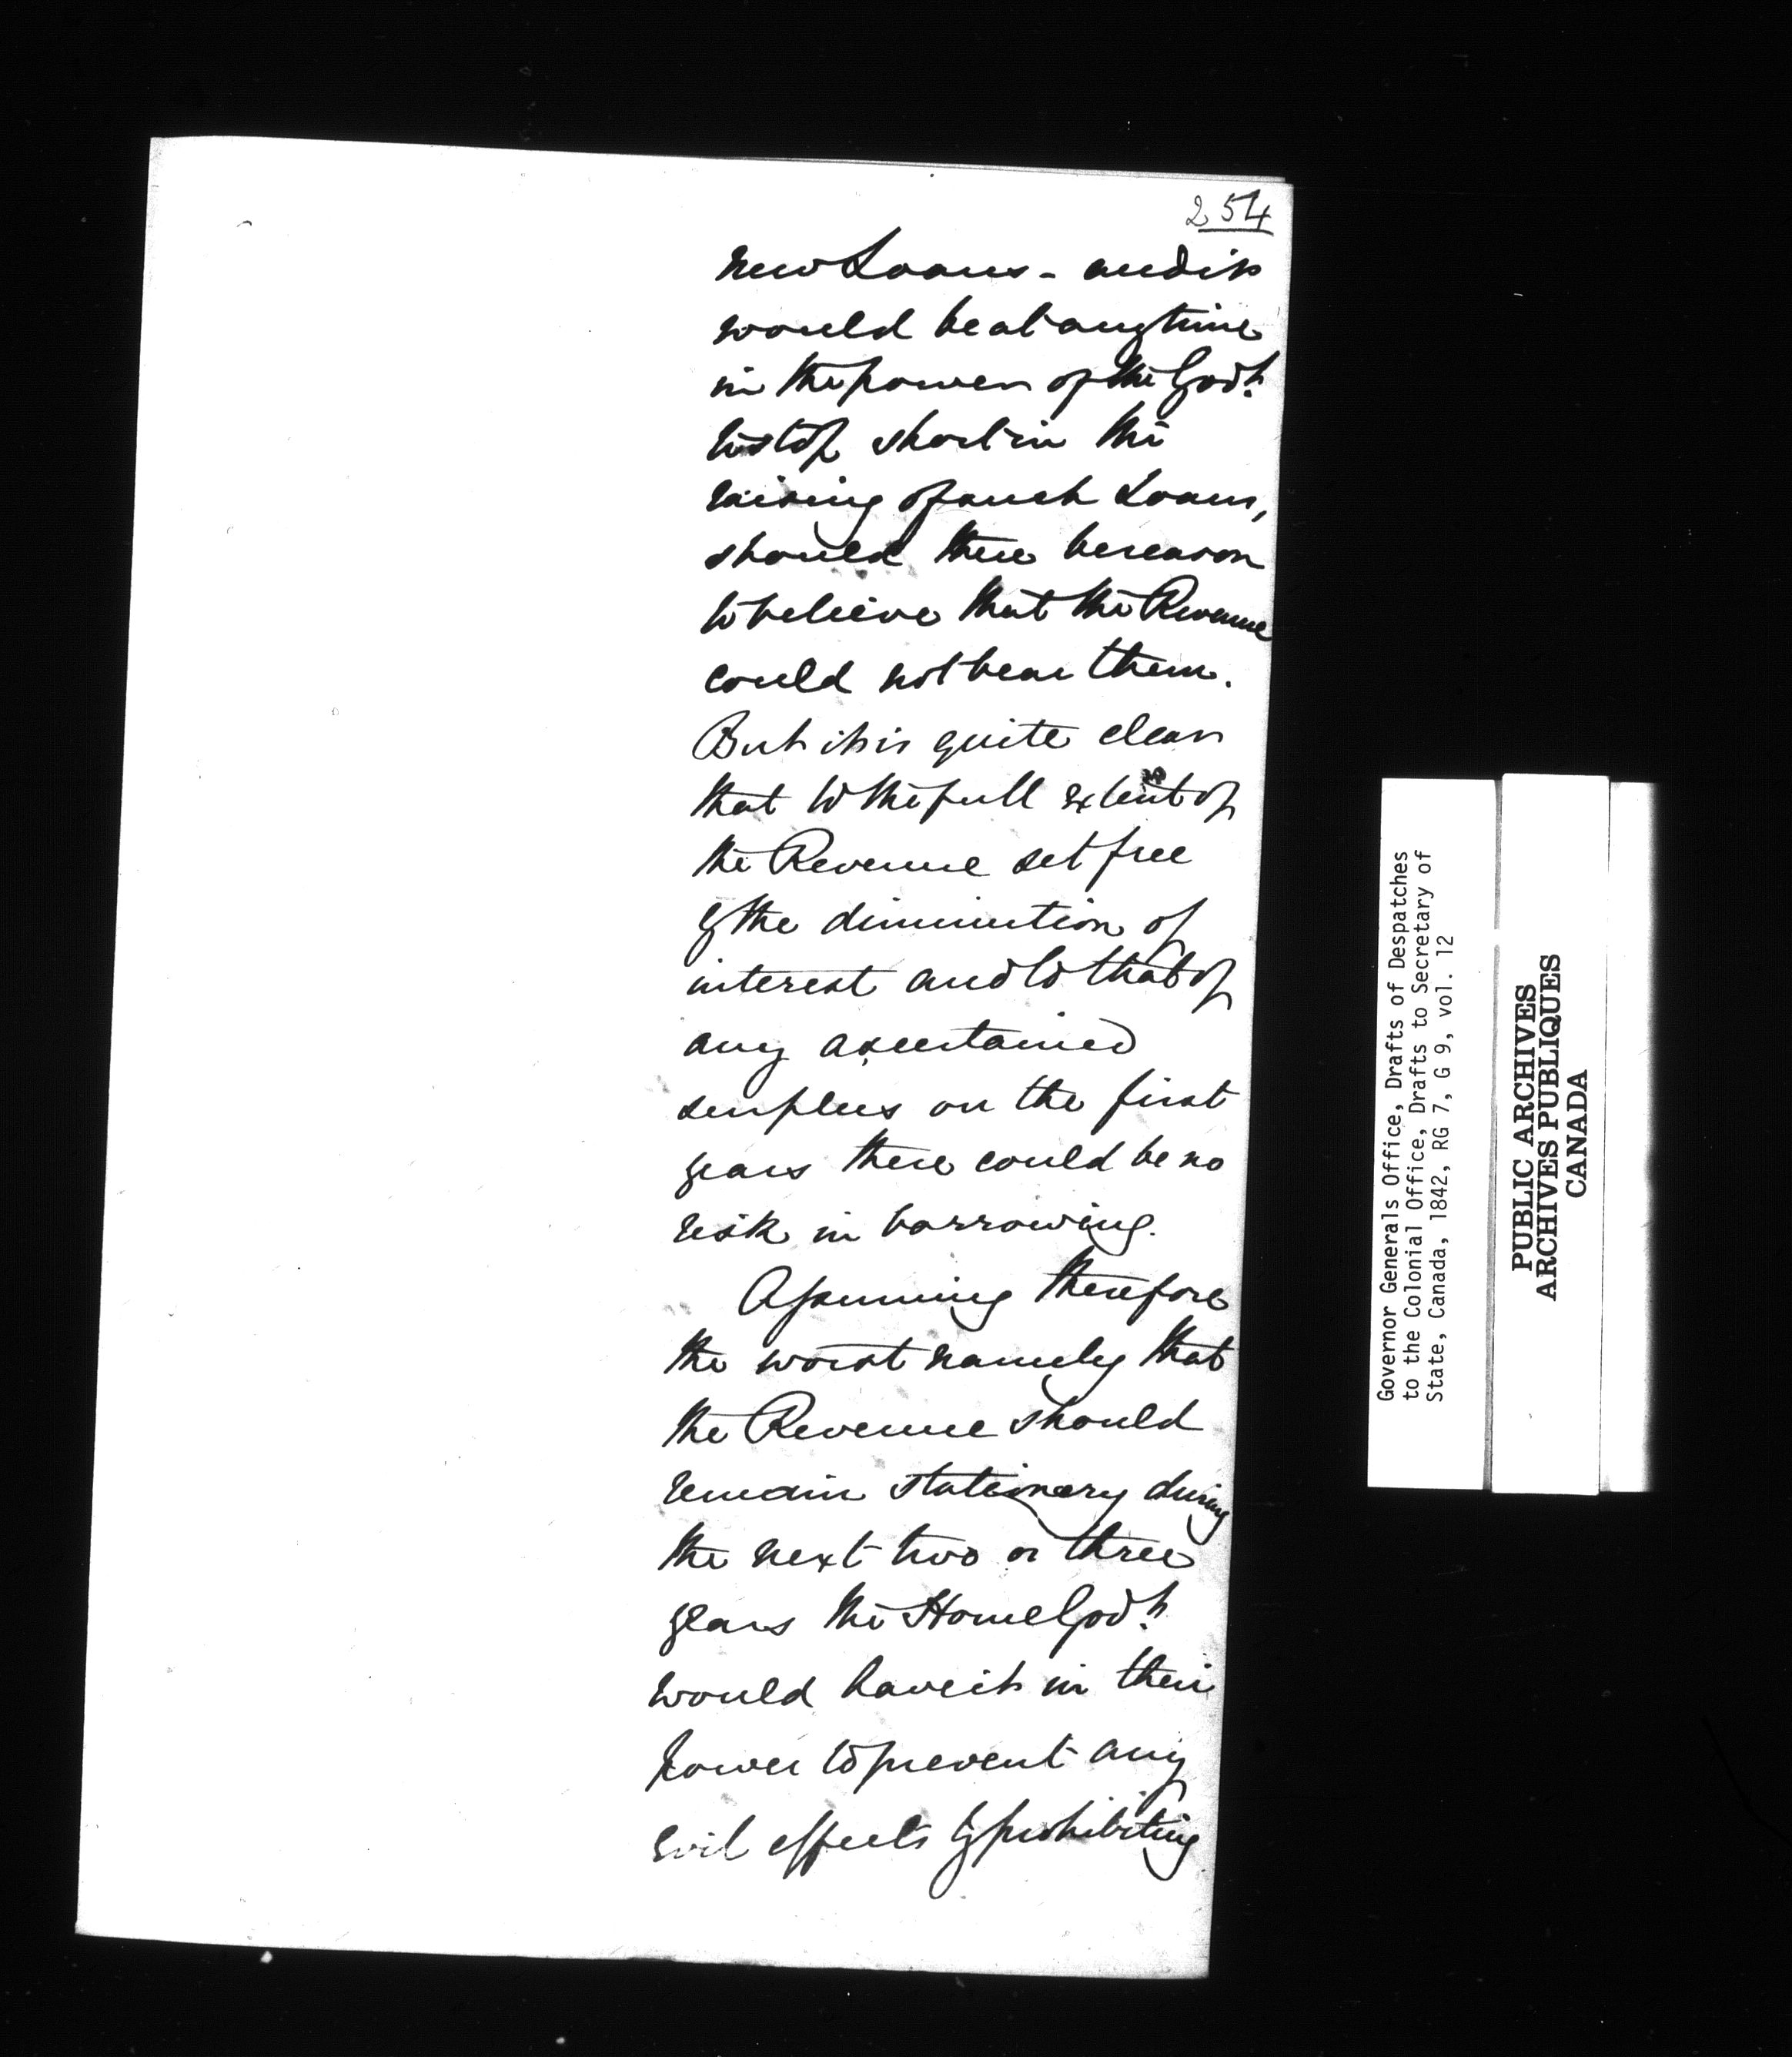 254
new Loans - and it
would be at any time
in the power of the Govt.
to stop short in the
raising of such Loans,
should there be reason
to believe that the Revenue
could not bear them.
But it is quite clear
that to the full extent of
the Revenue set free
by the diminution of
interest and to that of
any ascertained
surplus on the first
years there could be no
risk in borrowing.
Assuming therefore
the worst namely that
the Revenue should
remain stationary during
the next two or three
years the Home Govt.
would have it in their
power to prevent any
evil effects by prohibiting
Governor Generals Office, Drafts of Despatches
to the Colonial Office, Drafts to Secretary of
State, Canada, 1842, RG 7, G 9, vol. 12
PUBLIC ARCHIVES
ARCHIVES PUBLIQUES
CANADA